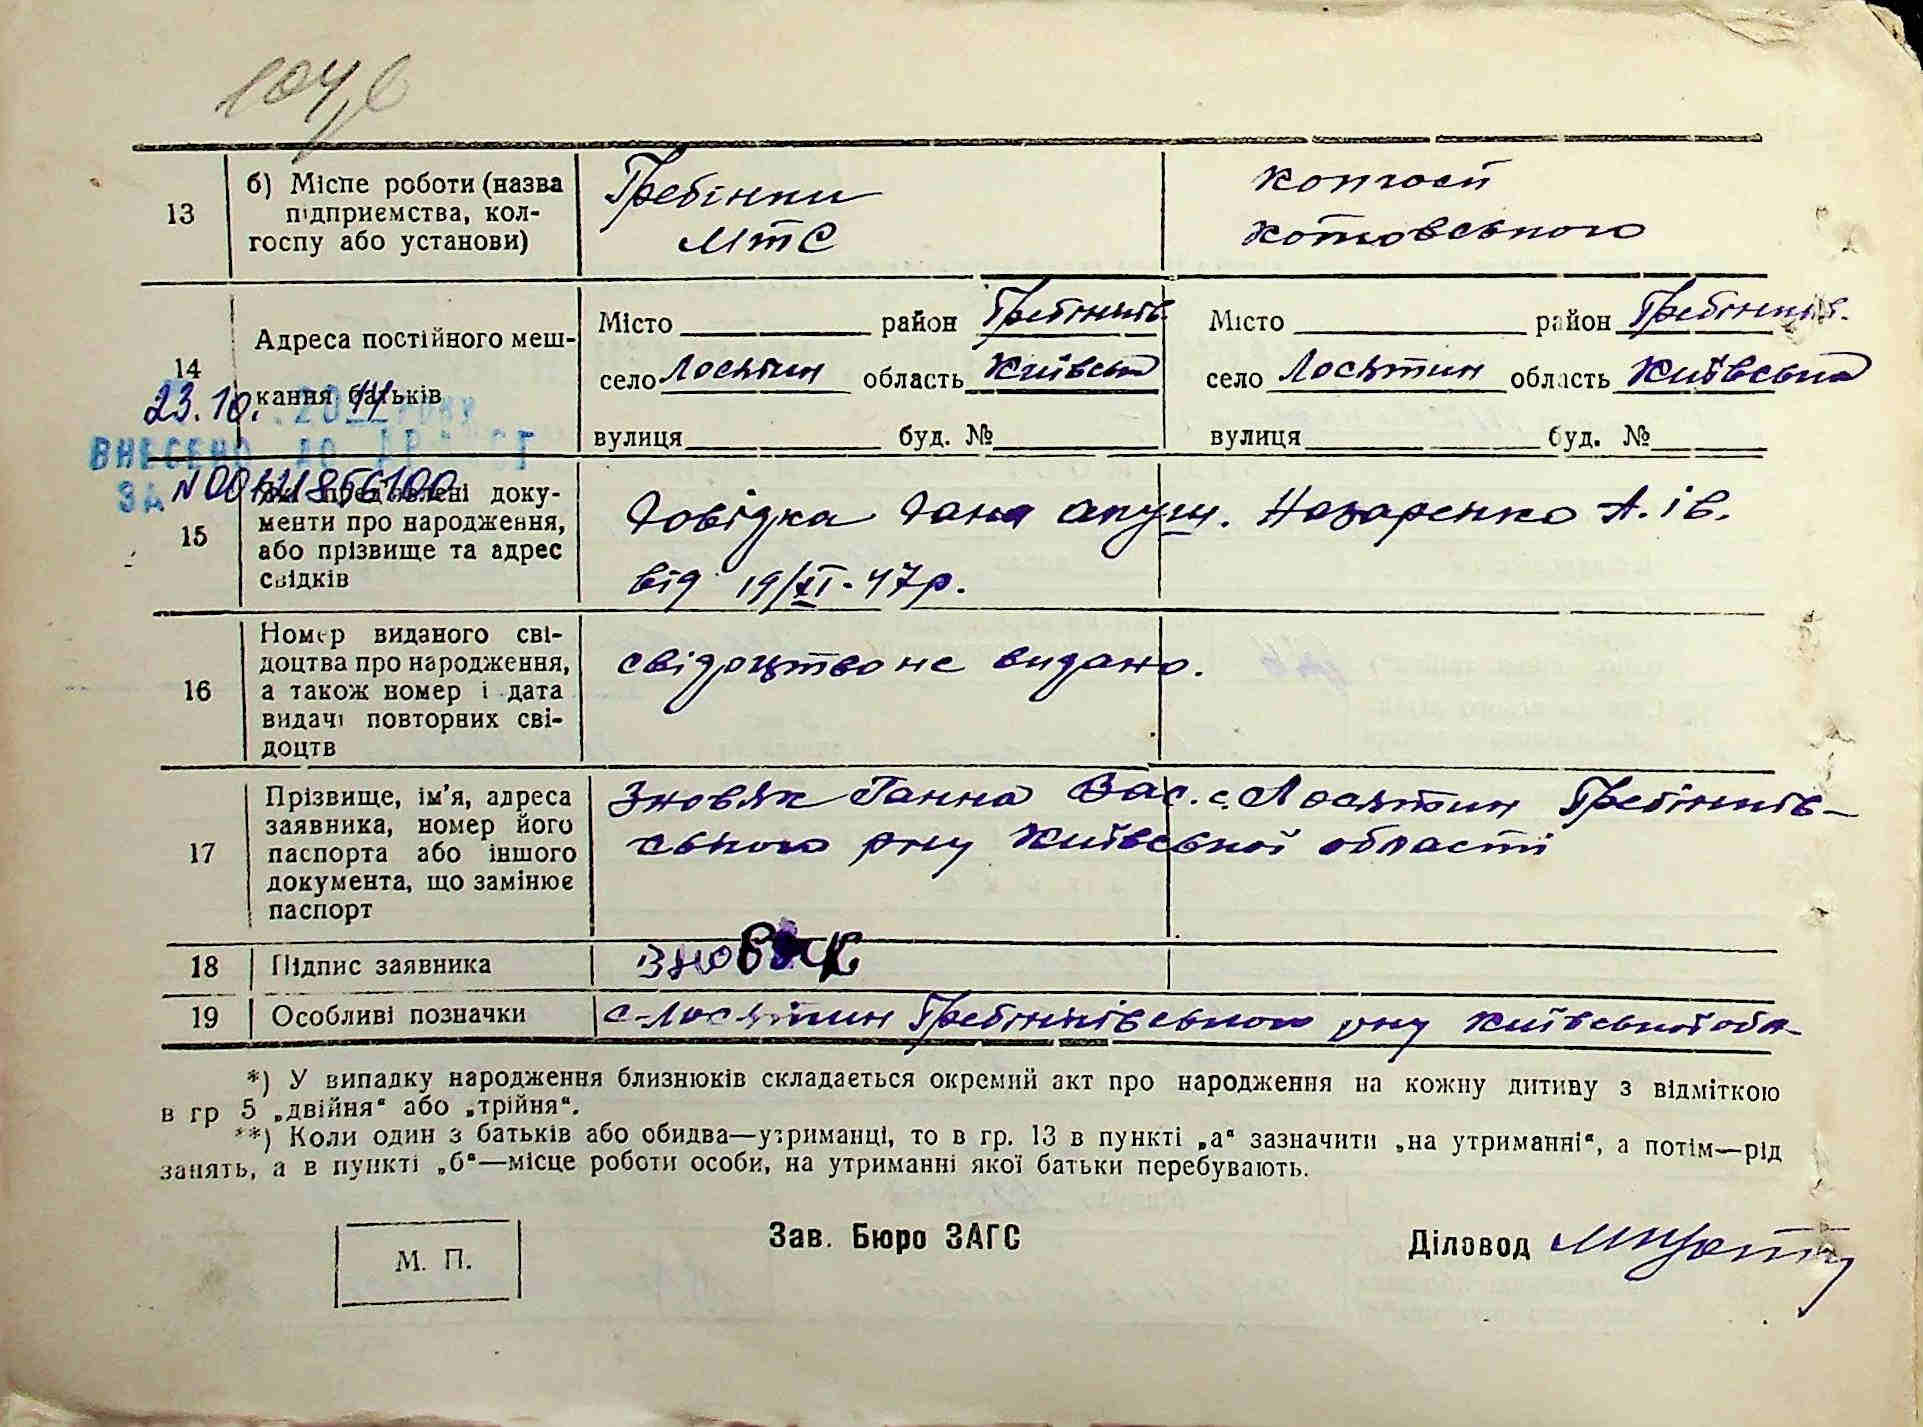 13
б) Місце роботи (назва
підприємства, кол-
госпу або установи)
Гребінки
МТС
колгосп
Котовського
14
Адреса постійного меш-
кання батьків
Місто район Гребінків.
село Лосятин область Київська
вулиця буд. №
Місто район Гребінків.
село Лосятин область Київська
вулиця буд. №
23.10. 2011 року
ВНЕСЕНО ДО ДРАЦСГ
ЗА N
15
Які пред'явлені доку-
менти про народження,
або прізвище та адрес
свідків
Довідка дана акуш. Назаренко А. Ів.
від 19/XI-47р.
16
Номер виданого сві-
доцтва про народження,
а також номер і дата
видачі повторних сві-
доцтв
свідоцтво не видано.
17
Прізвище, ім'я, адреса
заявника, номер його
паспорта або іншого
документа, що замінює
паспорт
Зновяк Ганна Вас. с. Лосятин Гребінків-
ського р-ну Київської області
18
Підпис заявника
Зновяк
19
Особливі позначки
с-Лосятин Гребінківського р-ну Київської обл-
*) У випадку народження близнюків складається окремий акт про народження на кожну дитину з відміткою
в гр 5 „двійня“ або „трійня“.
**) Коли один з батьків або обидва—утриманці, то в гр. 13 в пункті „а“ зазначити „на утриманні“, а потім—рід
занять, а в пункті „б“—місце роботи особи, на утриманні якої батьки перебувають.
М. П.
Зав. Бюро ЗАГС
Діловод